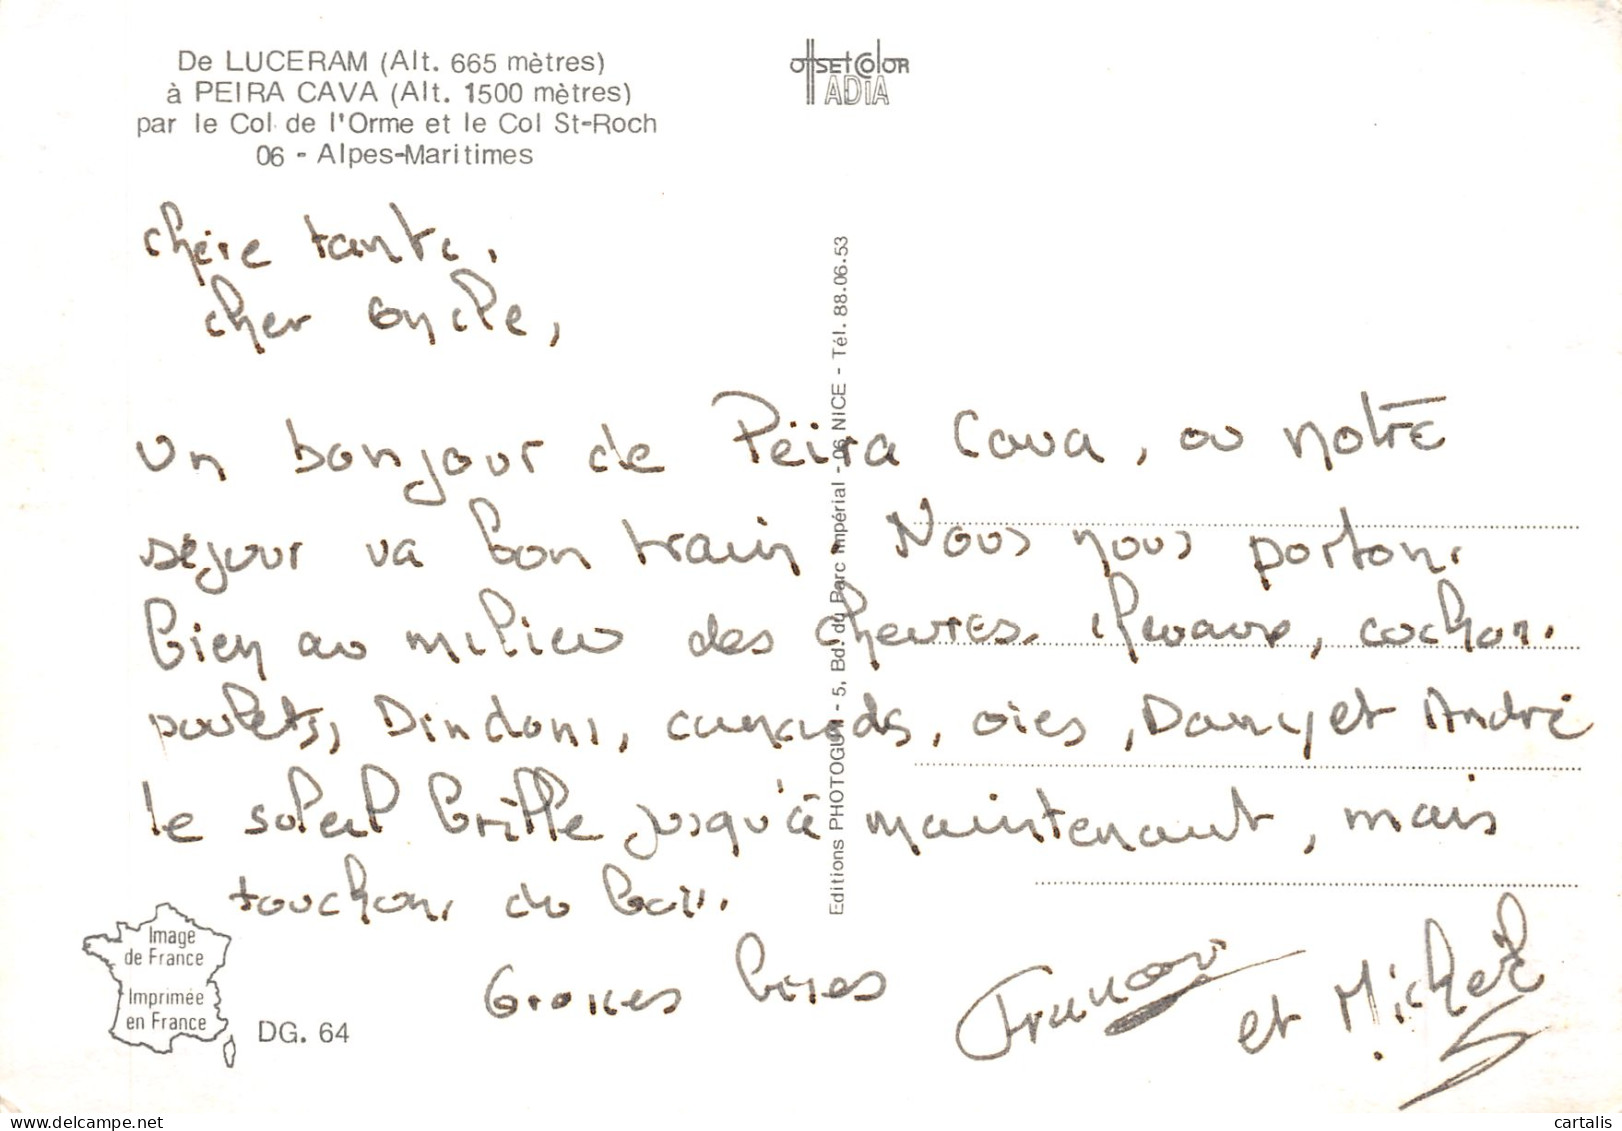 De LUCERAM (Alt. 665 mètres)
à PEIRA CAVA (Alt. 1500 mètres)
par le Col de l'Orme et le Col St-Roch
06 - Alpes-Maritimes
OffsetColor
ADIA
chère tante,
cher oncle,
Un bonjour de Pëira Cava, ou notre
séjour va bon train Nous nous portons
bien au milieu des chevres, chevaux, cochons
poulets, Dindons, canards, oies, Dany et André
le soleil brille jusqu'à maintenant, mais
touchons du bois.
Grosses bises
et Michel
Editions PHOTOGUY - 5, Bd du Parc Impérial - 06 NICE - Tél. 88.06.53
Image
de France
Imprimée
en France
DG. 64
cartalis